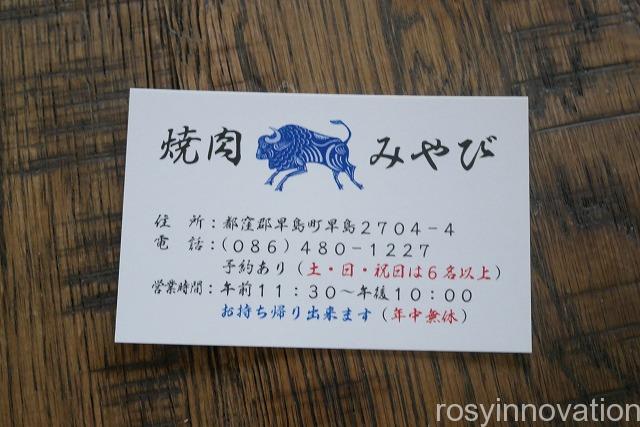 焼肉 みやび
住 所：都窪郡早島町早島２７０４－４
電 話：（０８６）４８０－１２２７
予約あり（土・日・祝日は６名以上）
営業時間：午前１１：３０～午後１０：００
お持ち帰り出来ます（年中無休）
rosyinnovation